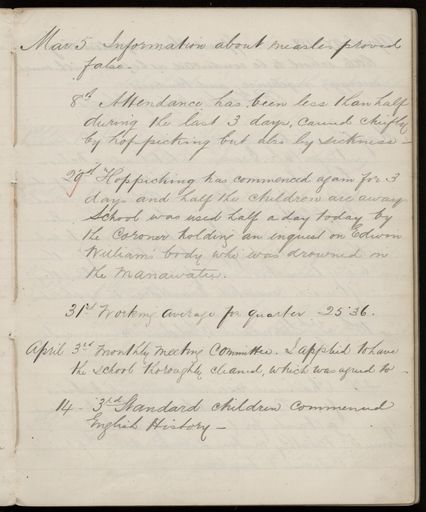 Mar 5 Information about measles proved
false.
8th Attendance has been less than half
during the last 3 days, caused chiefly
by hop picking but also by sickness —
29th Hoppicking has commenced again for 3
days and half the children are away
School was used half a day today by
the Coroner holding an inquest on Edwin
Williams body who was drowned in
the Manawatu.
31st Working average for quarter 25.36.
April 3rd Monthly meeting Committee. I applied to have
the school thoroughly cleaned, which was agreed to -
14 - 3rd Standard children commenced
English History —